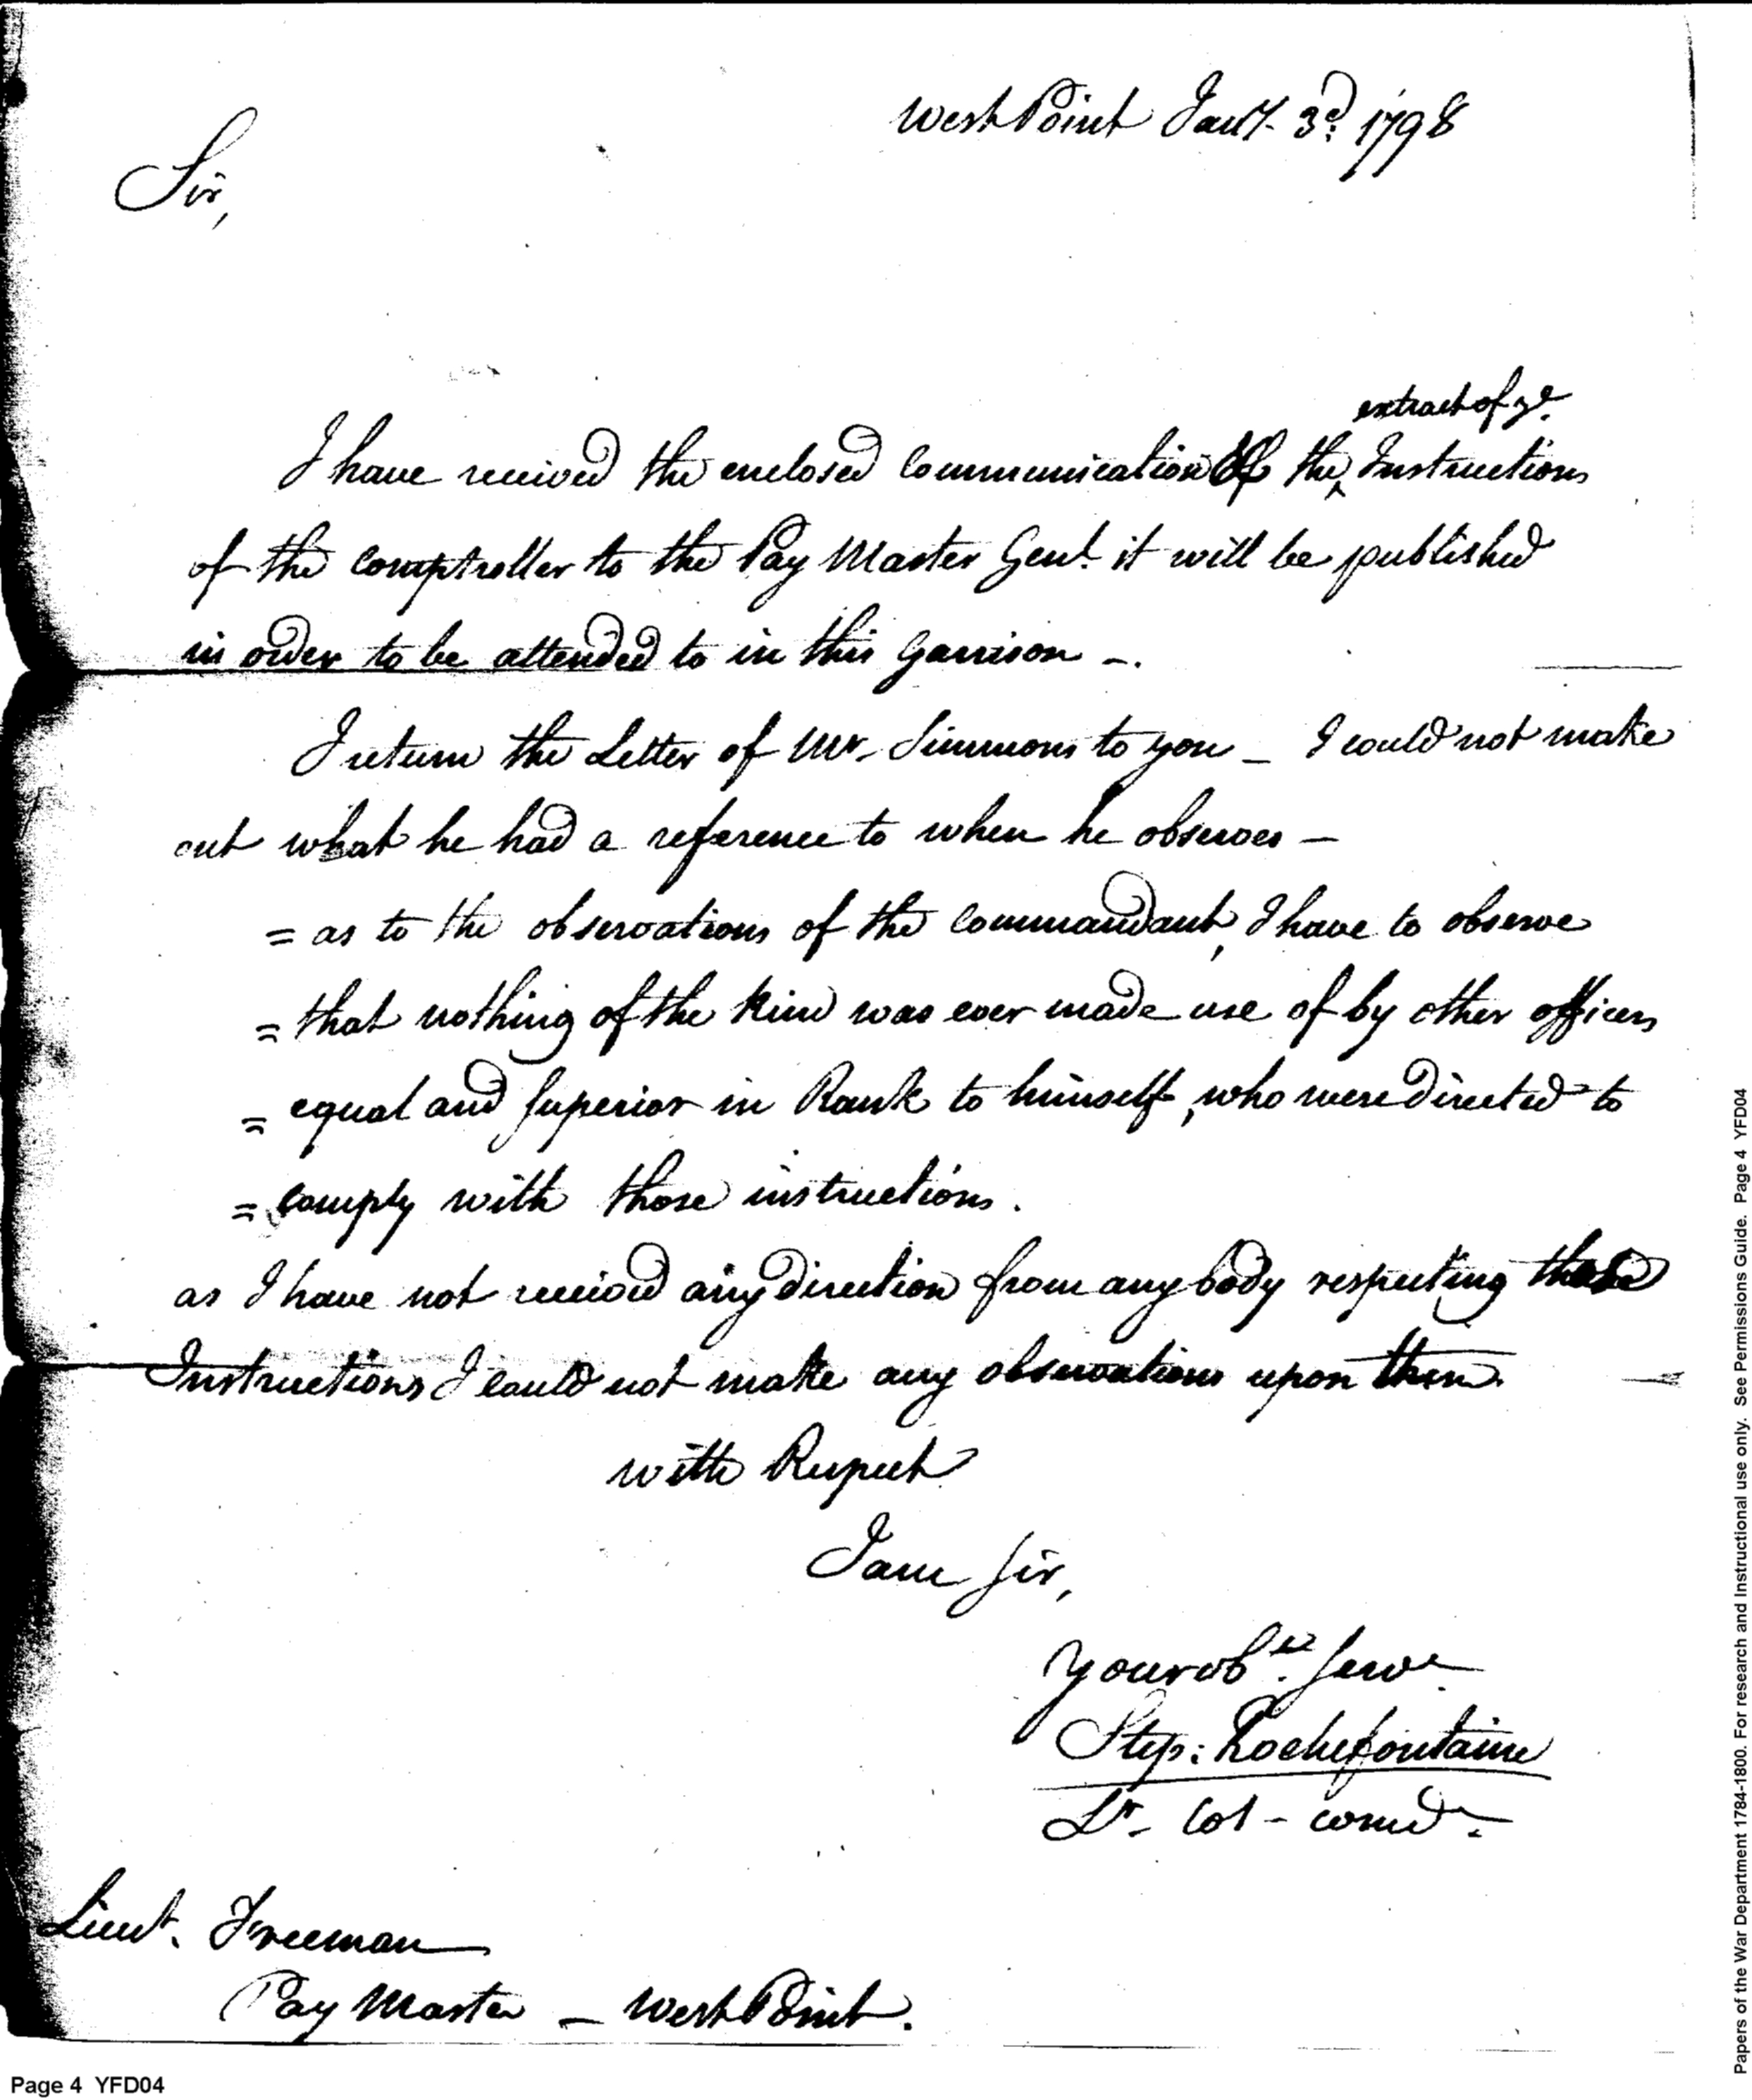 West Point Jany. 3d. 1798
Sir,
extract of ye.
I have received the enclosed Communication of the ‸ Instructions
of the Comptroller to the Pay Master Genl. it will be published
in order to be attended to in this Garrison –.
I return the Letter of Mr. Simmons to you – I could not make
out what he had a reference to when he observes –
= as to the observations of the Commandant, I have to observe
= that nothing of the kind was ever made use of by other officers
= equal and Superior in Rank to himself, who were directed to
= Comply with those instructions.
as I have not received any direction from any body respecting those
Instructions I could not make any observations upon them.
with Respect
I am Sir,
Your obt. Serv.
Step: Rochefontaine
Lt. Col – comdt.
Lieut. Freeman
Pay Master – West Point.
Page 4 YFD04
Papers of the War Department 1784-1800. For research and Instructional use only. See Permissions Guide. Page 4 YFD04